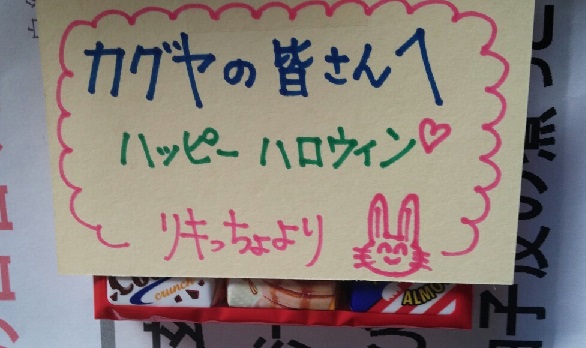 カグヤの皆さんへ
ハッピー ハロウィン♡
リキっちょより
crunch
ALMO
子及の煮